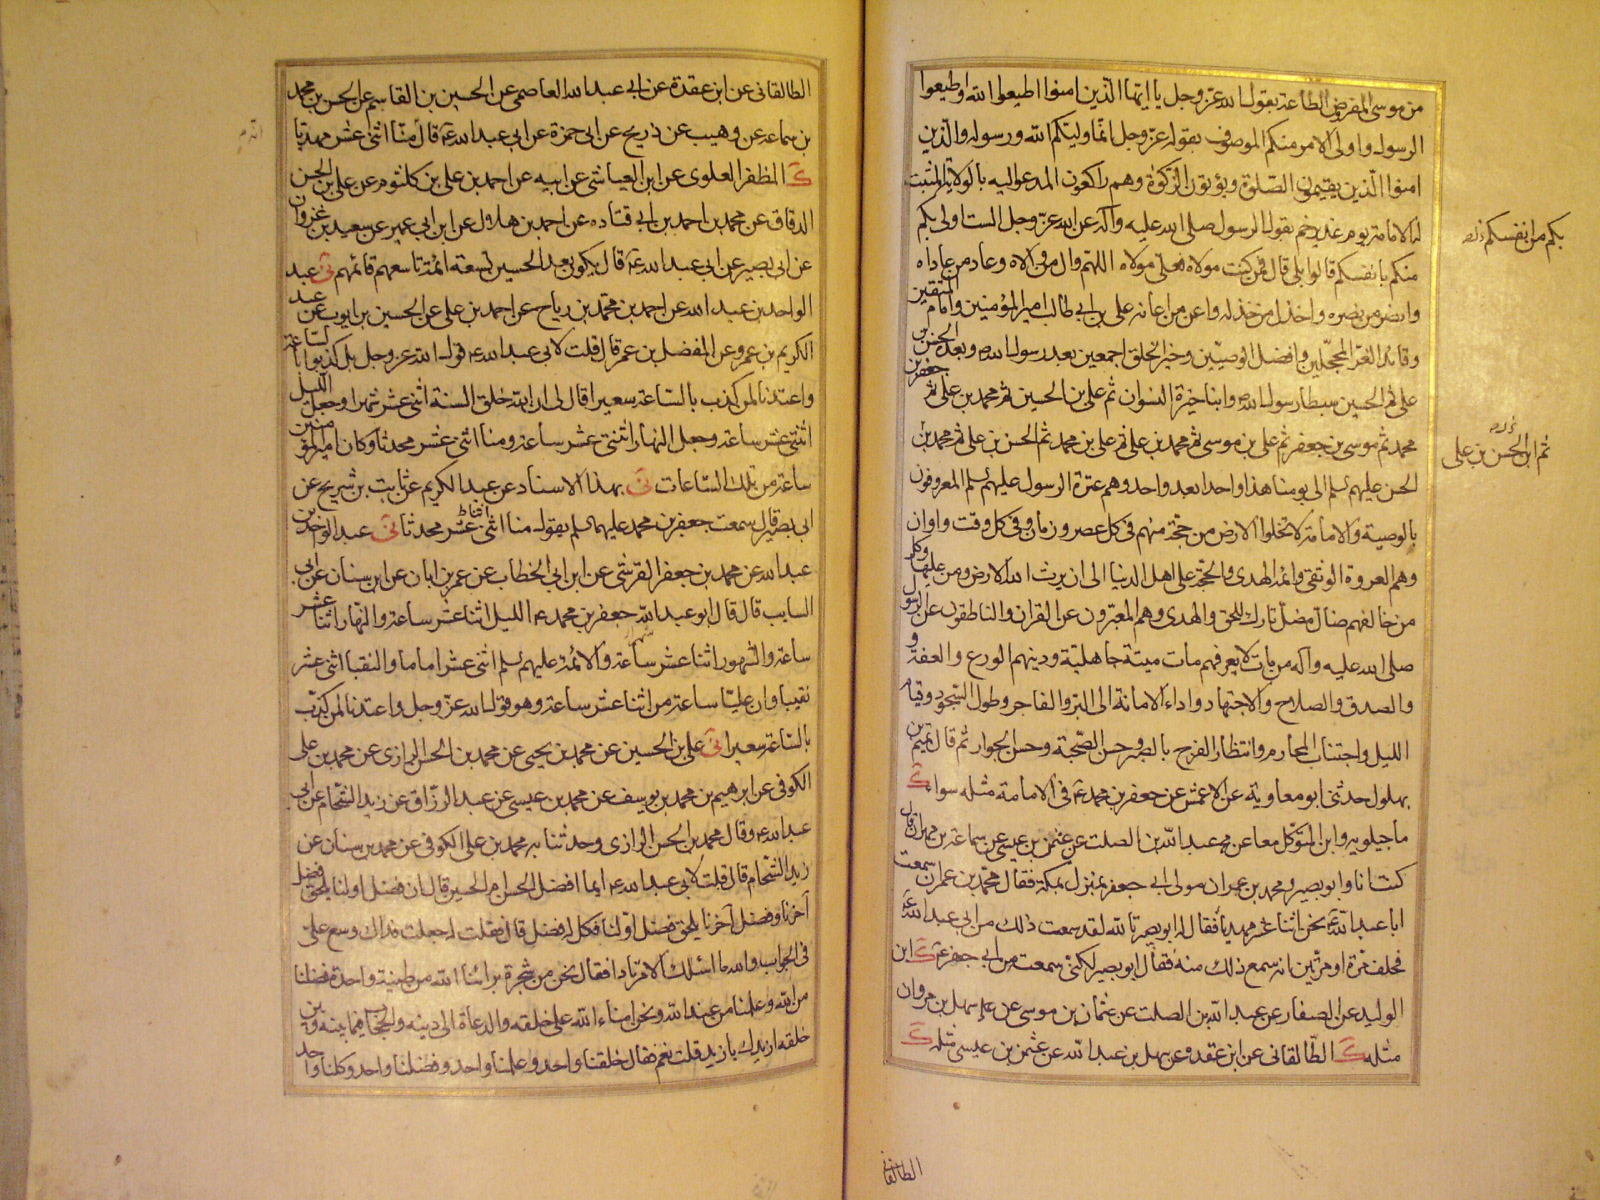 من موسى المفروض الطاعة بقول الله عز وجل يا ايها الذين امنوا اطيعوا الله واطيعوا
الرسول واولى الامر منكم الموصوف بقوله عز وجل انما وليكم الله ورسوله والذين
امنوا الذين يقيمون الصلوة ويؤتون الزكوة وهم راكعون المدعو اليه بالولاية المثبت
له الامامة يوم غدير خم بقول الرسول صلى الله عليه وآله عن الله عز وجل الست اولى بكم
منكم بانفسكم قالوا بلى قال فمن كنت مولاه فعلى مولاه اللهم وال من والاه وعاد من عاداه
وانصر من نصره واخذل من خذله واعن من اعانه على بن ابي طالب امير المؤمنين وامام المتقين
وقائد الغر المحجلين وافضل الوصيين وخير الخلق اجمعين بعد رسول الله وبعده الحسن بن
على ثم الحسين سبطا رسول الله وابنا خيرة النسوان ثم على بن الحسين ثم محمد بن على ثم جعفر بن
محمد ثم موسى بن جعفر ثم على بن موسى ثم محمد بن على ثم على بن محمد ثم الحسن بن على ثم محمد بن
الحسن عليهم سلم الى يومنا هذا واحدا بعد واحد وهم عترة الرسول عليهم سلم المعروفون
بالوصية والامامة لا تخلوا الارض من حجة منهم فى كل عصر وزمان وفى كل وقت واوان
وهم العروة الوثقى وائمة الهدى والحجة على اهل الدنيا الى ان يرث الله الارض ومن عليها وكل
من خالفهم ضال مضل تارك للحق والهدى وهم المعبرون عن القران والناطقون عن الرسول
صلى الله عليه وآله من مات لا يعرفهم مات ميتة جاهلية ودينهم الورع والعفة و
والصدق والصلاح والاجتهاد واداء الامانة الى البر والفاجر وطول السجود وقيام
الليل واجتناب المحارم وانتظار الفرج بالصبر وحسن الصحبة وحسن الجوار ثم قال تميم بن
بهلول حدثنى ابو معاوية عن الاعمش عن جعفر بن محمد ع فى الامامة مثله سواء ك
ماجيلويه وابن المتوكل معا عن محمد عن عبد الله بن الصلت عن عثمن بن عيسى عن سماعة بن مهران قال
كنت انا وابو بصير ومحمد بن عمران مولى ابي جعفر بمنزل بمكة فقال محمد بن عمران سمعت
ابا عبد الله ع نحن اثنا عشر مهديا فقال له ابو بصير تالله لقد سمعت ذلك من ابى عبد الله ع
فحلف مرة او مرتين انه سمع ذلك منه فقال ابو بصير لكنى سمعت من ابى جعفر ع ك ابن
الوليد عن الصفار عن عبد الله بن الصلت عن عثمان بن موسى عن على سهل بن مروان
مثله ك الطالقانى عن ابن عقده عن سهل بن عبد الله عن عثمن بن عيسى مثله ك
بكم من انفسكم
ثم ابن الحسن بن على
الطالقانى
الطالقانى عن ابن عقدة عن ابى عبد الله العاصمى عن الحسين بن القاسم عن الحسن بن محمد
بن سماعه عن وهيب عن ذريح عن ابى حمزة عن ابى عبد الله ع قال منا اثنى عشر مهديا
ك المظفر العلوى عن ابن العياشى عن ابيه عن احمد بن على بن كلثوم عن على بن الحسن
الدقاق عن محمد بن احمد بن ابى قتاده عن احمد بن هلال عن ابن ابى عمير عن سعيد بن غزوان
عن ابى بصير عن ابى عبد الله ع قال يكون بعد الحسين تسعة ائمة تاسعهم قائمهم نى عبد
الواحد بن عبد الله عن احمد بن محمد بن رياح عن احمد بن على عن الحسين بن ايوب عن عبد
الكريم بن عمرو عن المفضل بن عمر قال قلت لابى عبد الله ع قول الله عز وجل بل كذبوا بالساعة
واعتدنا لمن كذب بالساعة سعيرا قال لى ان الله خلق السنة اثنى عشر شهرا وجعل الليل
اثنتى عشر ساعة وجعل النهار اثنتى عشر ساعة ومنا اثنى عشر محدثا وكان امير المؤمنين
ساعة من تلك الساعات نى بهذا الاسناد عن عبد الكريم عن ثابت بن شريح عن
ابى بصير قال سمعت جعفر بن محمد عليهما سلم يقول منا اثنى عشر محدثا نى عبد الواحد بن
عبد الله عن محمد بن جعفر القرشى عن ابن ابى الخطاب عن عمر بن ابان عن ابن سنان عن ابى
السايب قال قال ابو عبد الله جعفر بن محمد ع الليل اثنا عشر ساعة والنهار اثنا عشر
ساعة والشهور اثنا عشر شهرا والائمة عليهم سلم اثنى عشر اماما والنقبا اثنى عشر
نقيبا وان عليا ساعة من اثنا عشر ساعة وهو قول الله عز وجل واعتدنا لمن كذب
بالساعة سعيرا نى على بن الحسين عن محمد بن يحيى عن محمد بن الحسن الرازى عن محمد بن على
الكوفى عن ابرهيم بن محمد بن يوسف عن محمد بن عيسى عن عبد الرزاق عن زيد الشحام عن ابى
عبد الله ع وقال محمد بن الحسن الرازى وحدثنا به محمد بن على الكوفى عن محمد بن سنان عن
زيد الشحام قال قلت لابى عبد الله ع ايما افضل الحسن ام الحسين قال ان فضل اولنا يلحق فضل
آخرنا وفضل آخرنا يلحق فضل اولنا فكل له فضل قال فقلت له جعلت فداك وسع على
فى الجواب والله ما اسئلك الا مرتادا فقال نحن من شجرة برانا الله من طينة واحدة فضلنا
من الله وعلمنا من عند الله ونحن امناء الله على خلقه والدعاة الى دينه والحجاب فيما بينه وبين
خلقه ازيدك يا زيد قلت نعم فقال خلقنا واحد وعلمنا واحد وفضلنا واحد وكلنا واحد